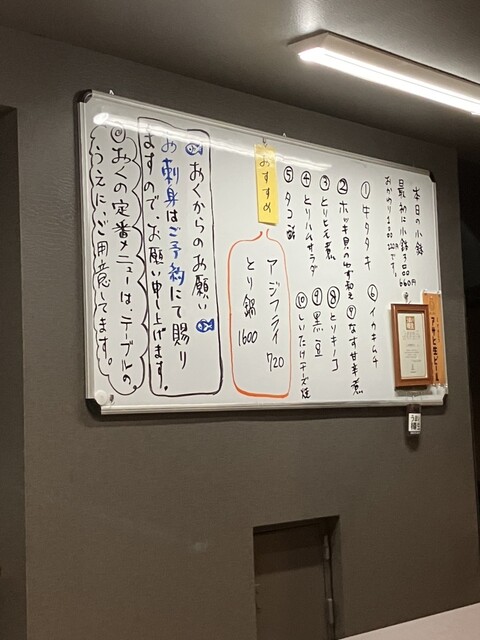 本日の小鉢
最初に小鉢3つ660円
おかわり1つ220円です。
① 牛タタキ
② ホッキ貝のゆず和え
③ とりとイモ煮
④ とりハムサラダ
⑤ タコ
⑥ イカキムチ
⑦ なす甘辛煮
⑧ とりキノコ
⑨ 黒豆
⑩ しいたけチーズ焼
おすすめ
アジフライ 720
とり鍋 1600
おくからのお願い
お刺身はご予約にて賜り
ますので、お願い申し上げます。
◎おくの定番メニューは、テーブルの
うえに、ご用意してます。
アサヒ生ビール